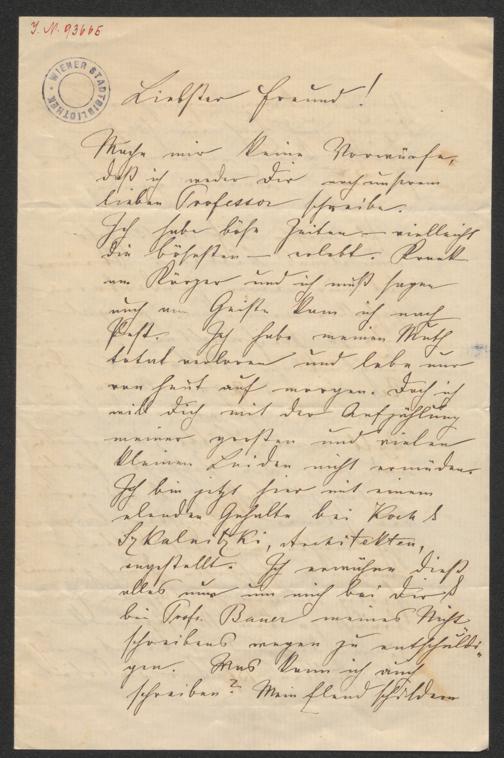 J. N. 93665
WIENER STADTBIBLIOTHEK
Liebster Freund!
Mache mir keine Vorwürfe,
daß ich weder Dir noch unserem
lieben Professor schreibe.
Ich habe böse Zeiten – vielleicht
die bösesten – erlebt. Krank
am Körper und ich muß sagen
auch am Geiste kam ich nach
Pest. Ich habe meinen Muth
total verloren und lebe nur
von heut auf morgen. Doch ich
will Dich mit der Aufzählung
meiner großen und vielen
kleinen Leiden nicht ermüden.
Ich bin jetzt hier mit einem
elenden Gehalte bei Koch &
Szkalnitzki, Architekten,
angestellt. Ich erwähne dieß
alles nur um mich bei Dir &
bei Prof. Bauer meines Nicht
schreibens wegen zu entschuldi-
gen. Was kann ich auch
schreiben? Mein Elend schildern